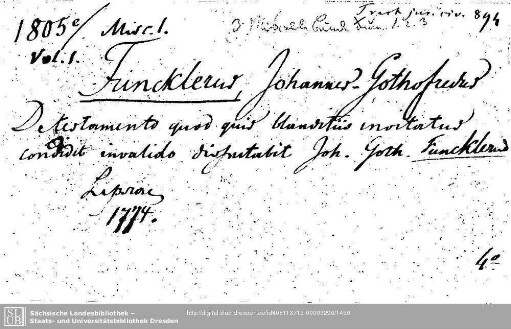 1805 e/ Misc. 1. Tract. jur. civ. 894
Vol. 1.
Funcklerus, Johannes-Gothofredus
De testamento quod quis blanditiis invitatus
condidit invalido disputabit Joh. Goth. Funcklerus
Lipsiae
1774.
4°
Sächsische Landesbibliothek –
Staats- und Universitätsbibliothek Dresden